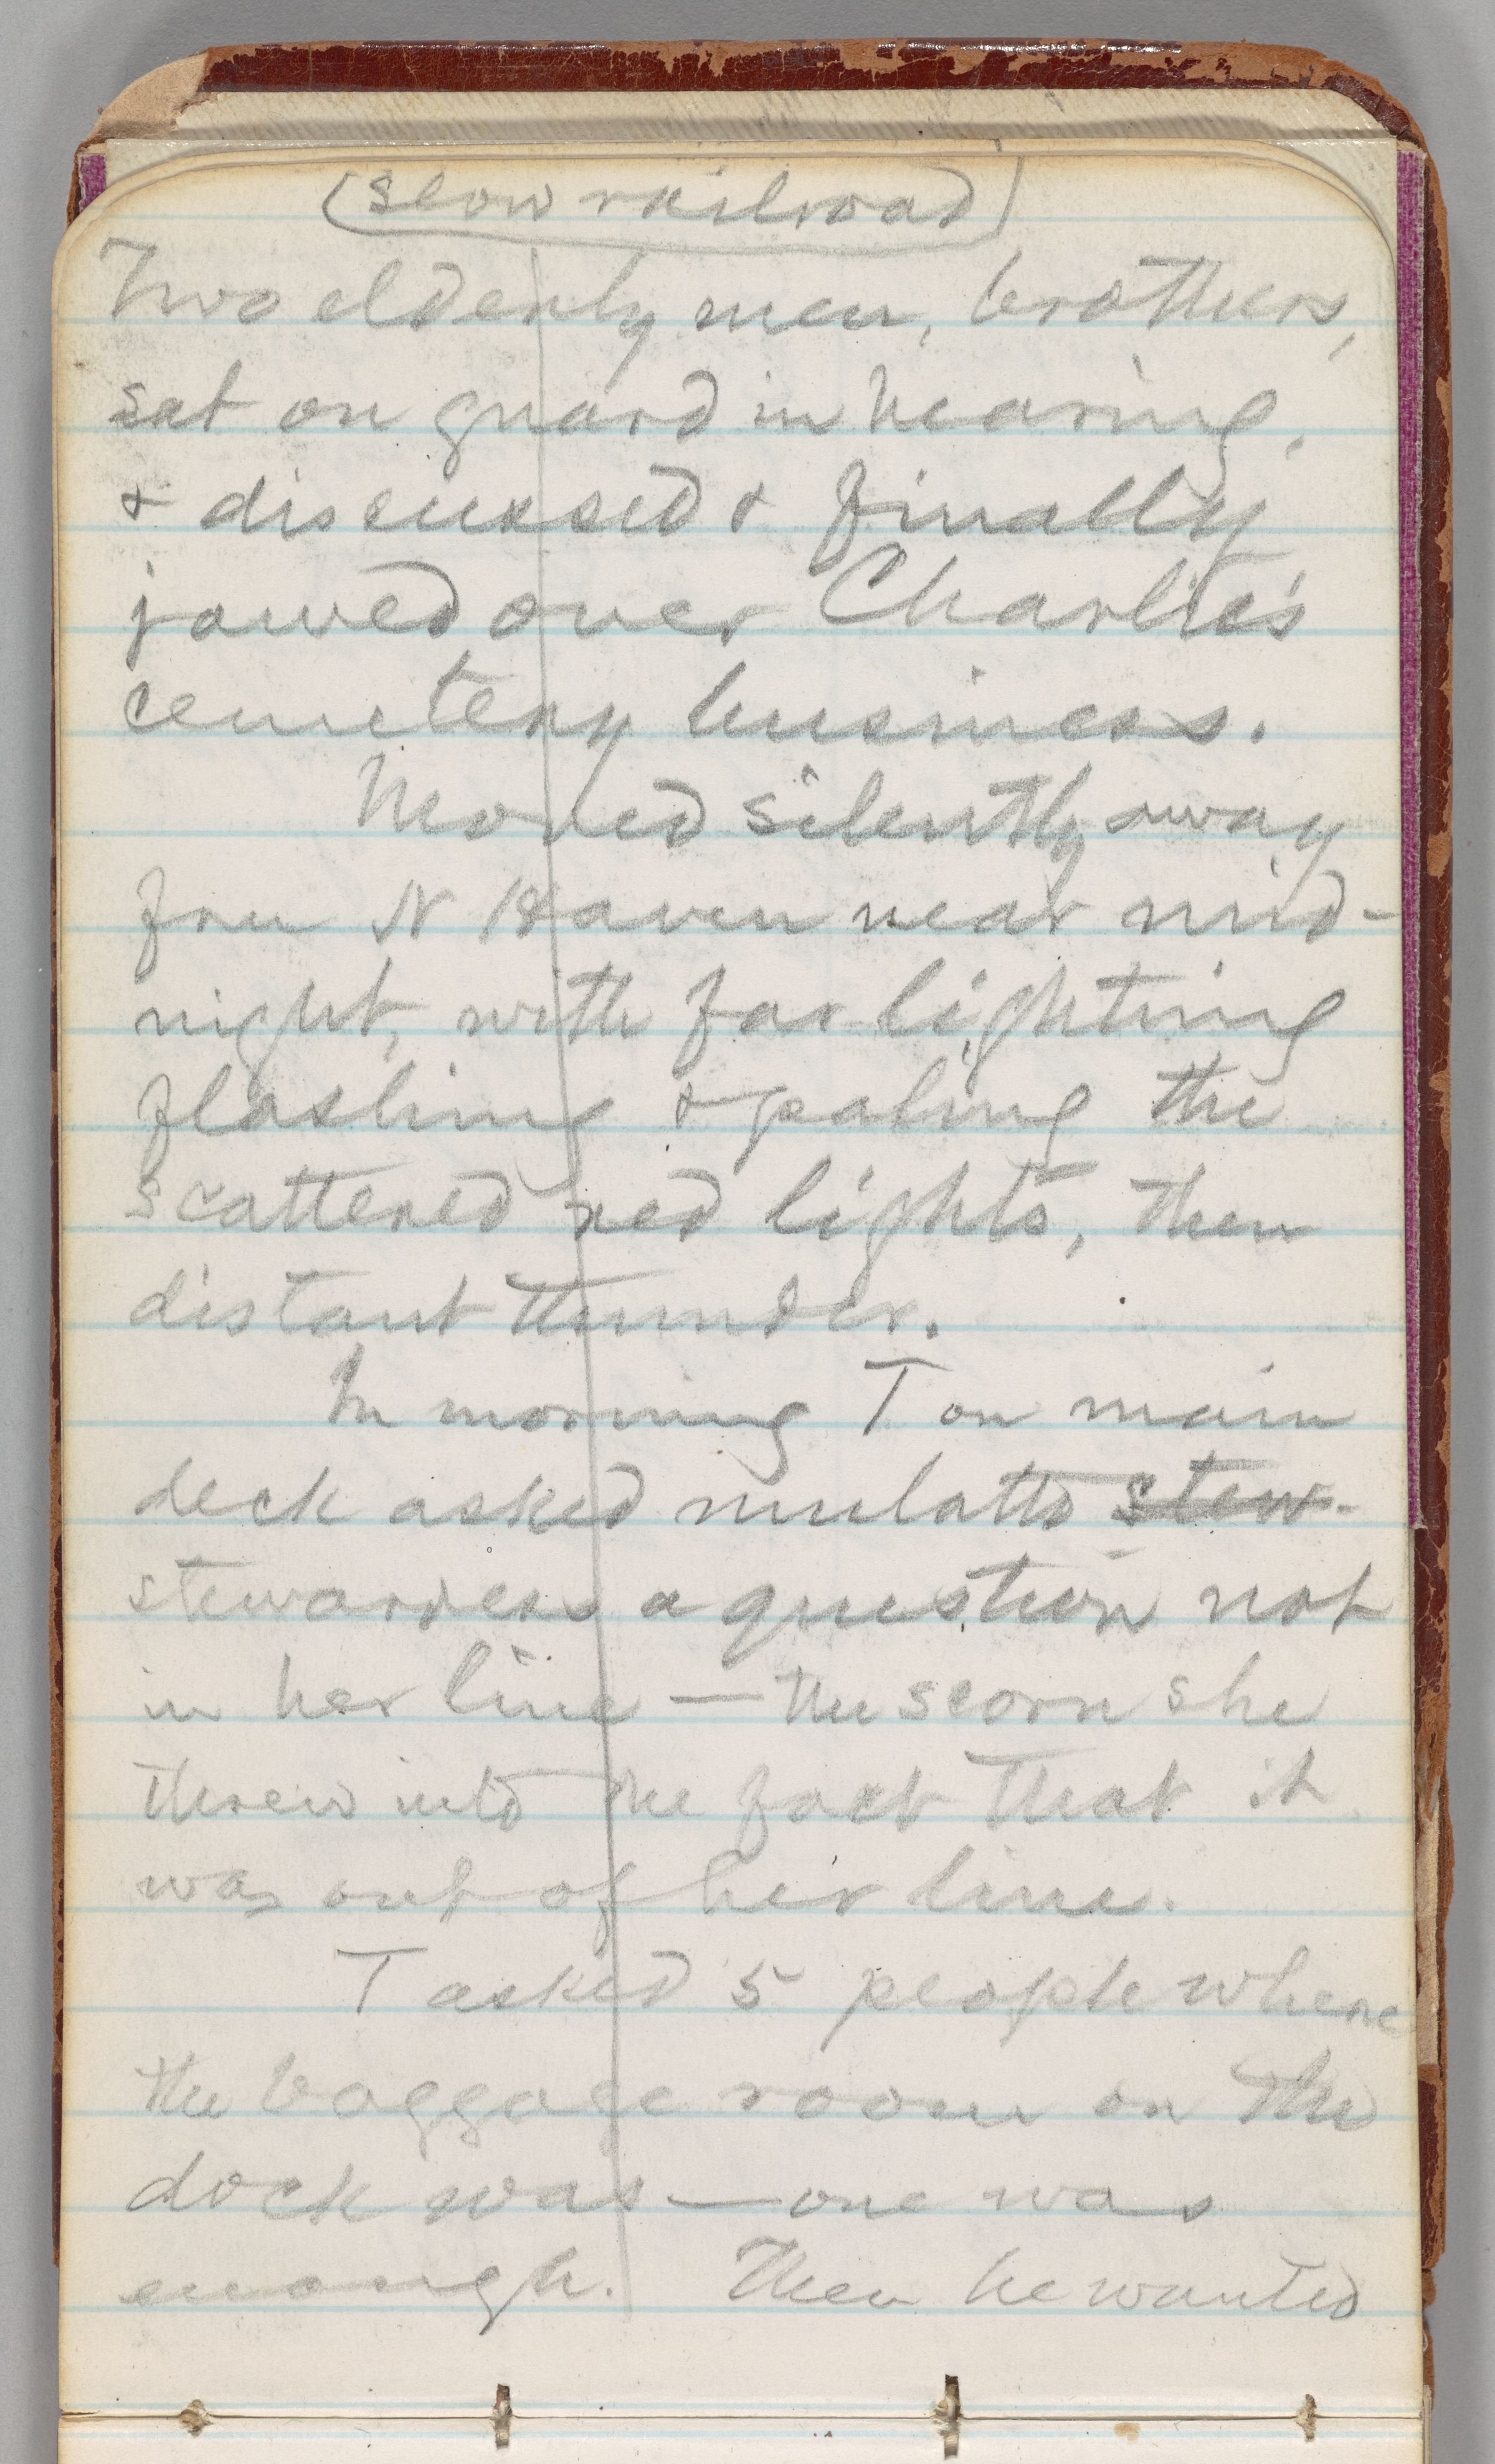 (slow railroad)
Two elderly men, brothers,
sat on guard in hearing,
& discussed & finally
jawed over Charlie's
cemetery business.
Moved silently away
from N Haven near mid-
night, with far lightning
flashing & paling the
scattered red lights, then
distant thunder.
In morning T on main
deck asked mulatto stew-
stewardess a question not
in her line — the scorn she
threw into the fact that it
was out of her line.
T asked 5 people where
the baggage room on the
dock was — one was
enough. Then he wanted